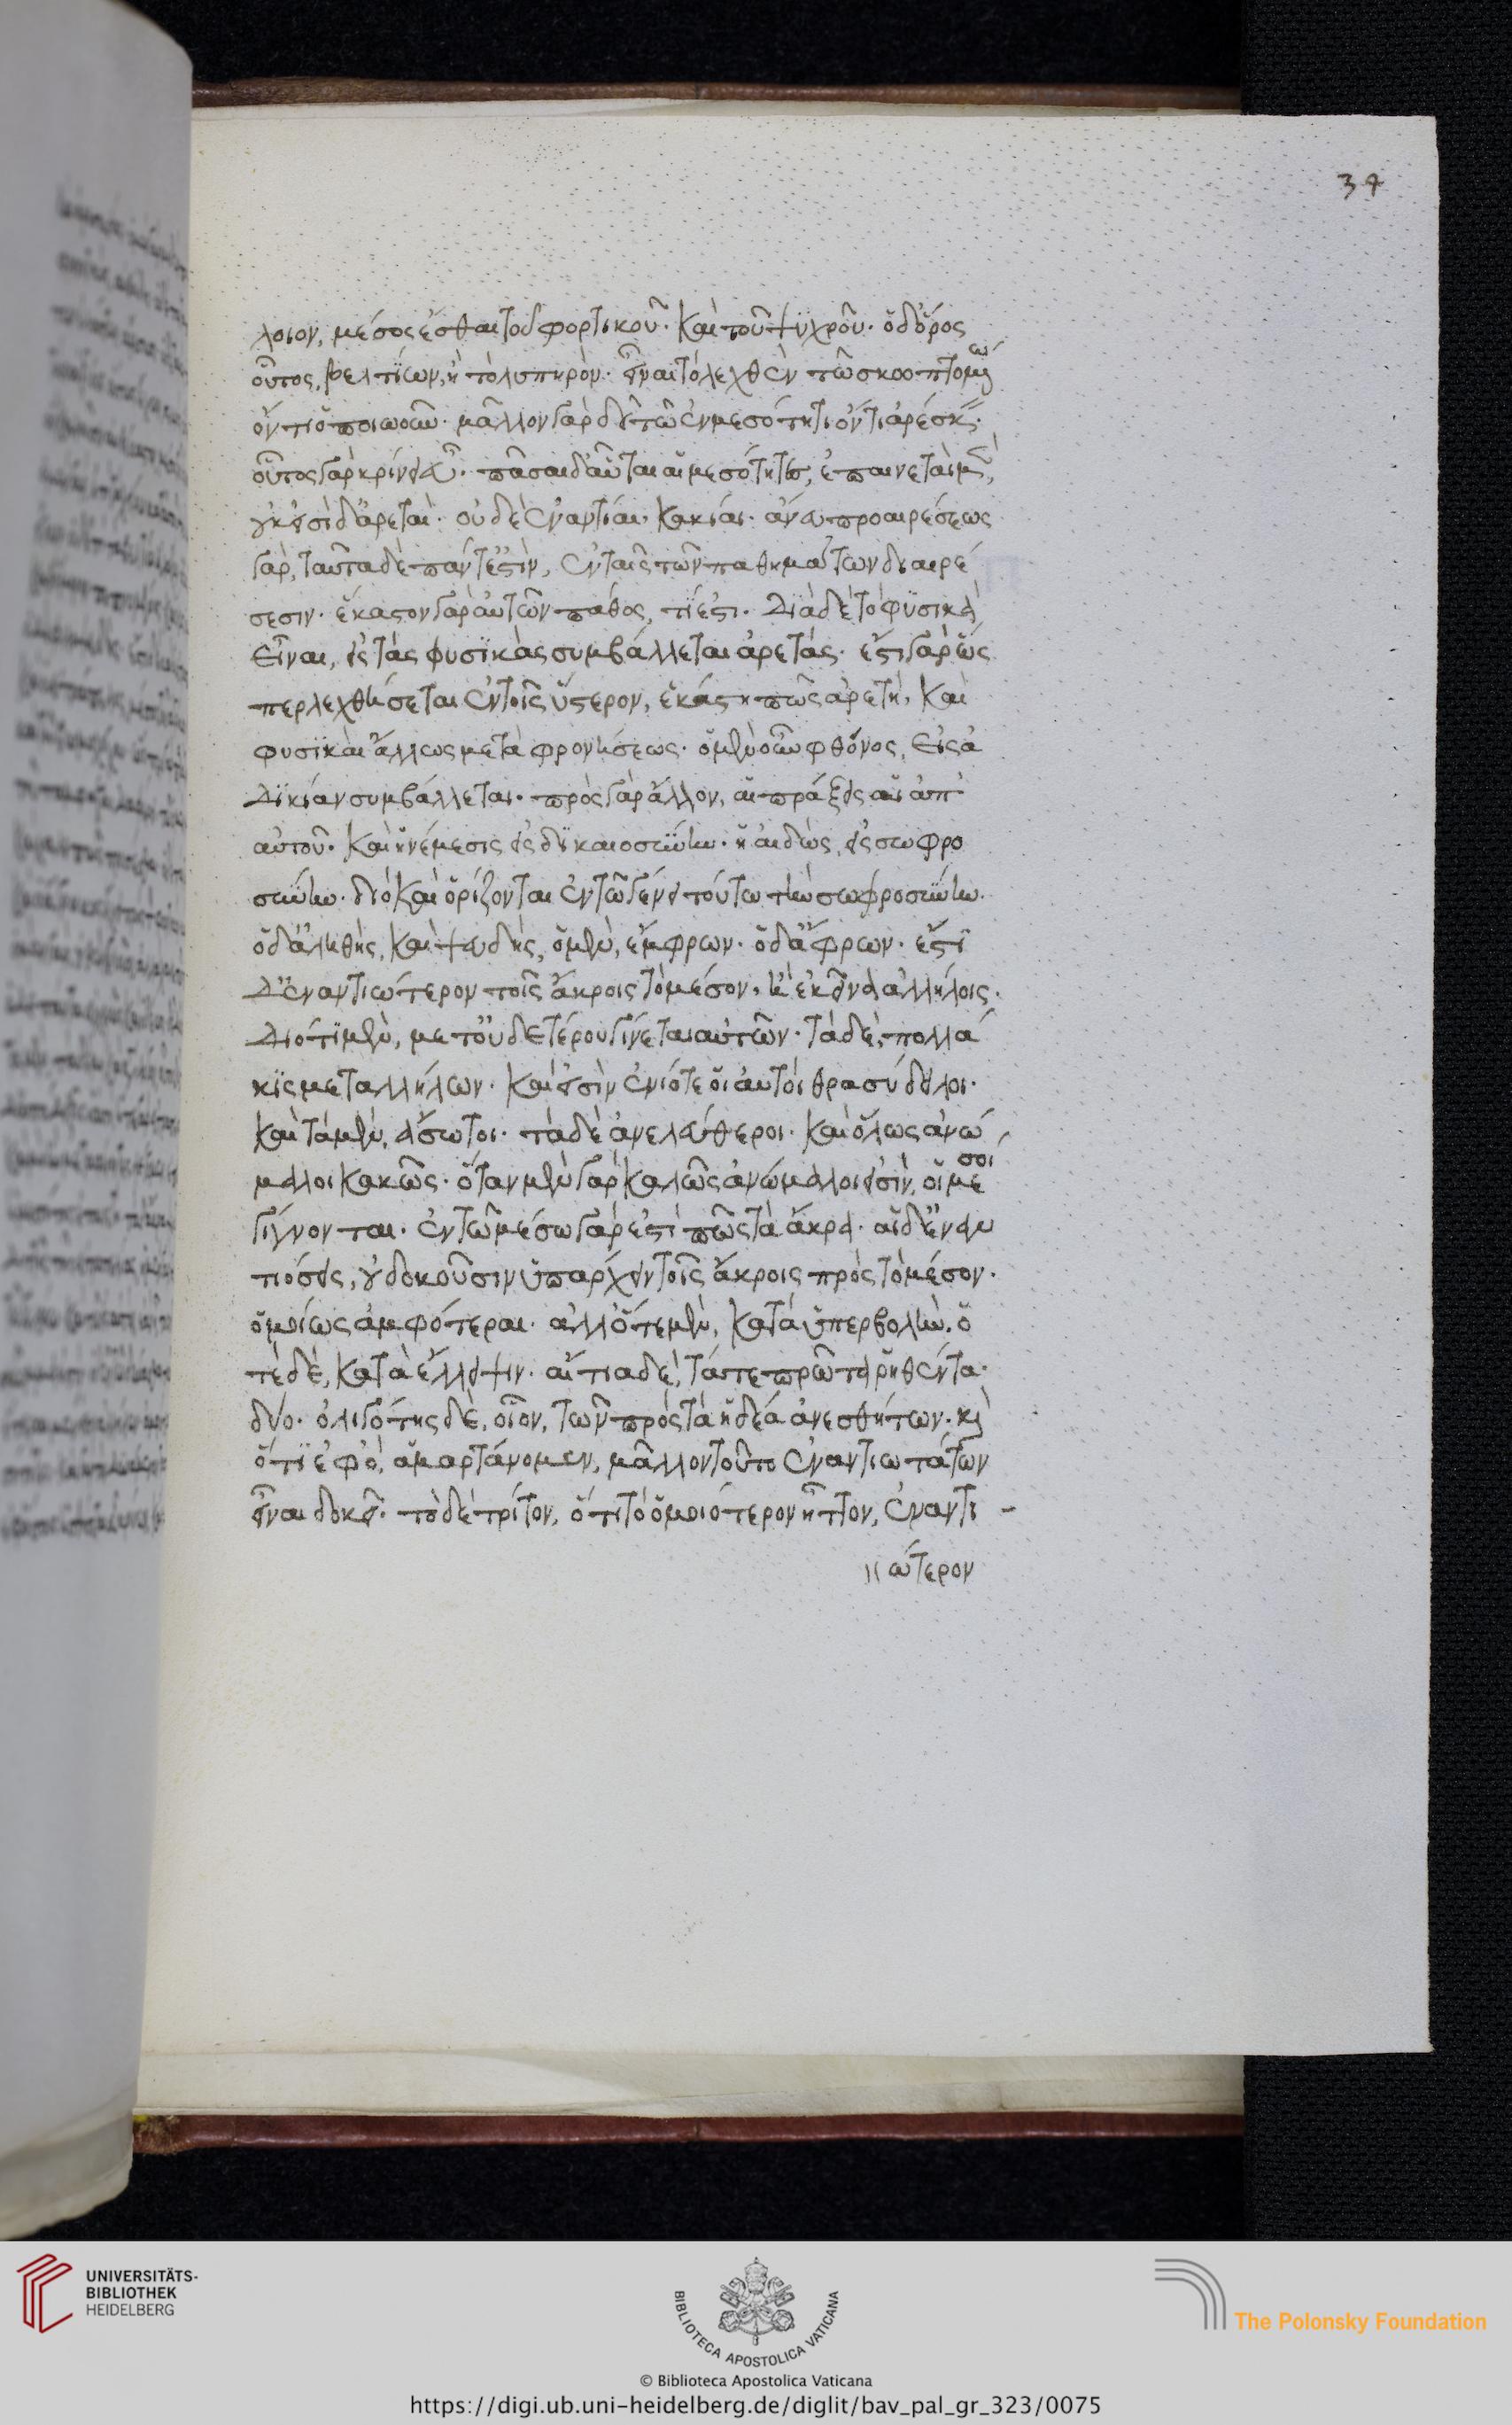 37
λοιον, μέσος ἔσθαι τοῦ φορτικοῦ. καὶ τοῦ ψυχροῦ. ὁ δ' ὅρος
οὗτος, βελτίων, ἢ τὸ λυπηρὸν. εἶναι τὸ λεχθὲν τῶ σκοοπτομέ
ὄντι ὁποιωοῦν. μᾶλλον γὰρ δεῖ τῶ ἐν μεσότητι ὄντι ἀρέσκειν.
οὗτος γὰρ κρίνει εὖ. πᾶσαι δ' αὗται αἱ μεσότητες, ἐπαινεταὶ μὲν,
οὐκ εἰσὶ δ' ἀρεταὶ. οὐδὲ ἐναντίαι, κακίαι. ἄνευ προαιρέσεως
γὰρ, ταῦτα δὲ πάντ' ἐστὶν, ἐν ταῖς τῶν παθημάτων διαιρέ
σεσιν. ἕκαστον γὰρ αὐτῶν πάθος, τί ἐστι. διὰ δὲ τὸ φυσικὰ
εἶναι, εἰς τὰς φυσικὰς συμβάλλεται ἀρετάς. ἔστι γὰρ ὥς
περ λεχθήσεται ἐν τοῖς ὕστερον, ἑκάστη πῶς ἀρετὴ, καὶ
φυσϊκὰι ἄλλως μετὰ φρονήσεως. ὁ μὲν οὖν φθόνος, εἰς ἀ
δικίαν συμβάλλεται. πρὸς γὰρ ἄλλον, αἱ πράξεις αἱ ἀπ'
αὐτοῦ. καὶ ἡ νέμεσις εἰς δικαιοσύνην. ἡ αἰδὼς, εἰς σωφρο
σύνην. διὸ καὶ ὁρίζονται ἐν τῶ γένει τούτω τὴν σωφροσύνην.
ὁ δ' ἀληθὴς, καὶ ψευδὴς, ὁ μὲν, ἔμφρων. ὁ δ' ἄφρων. ἔστι
δ' ἐναντιώτερον τοῖς ἄκροις τὸ μέσον, ἢ ἐκεῖνα ἀλλήλοις.
διότι μὲν, μετ' οὐδετέρου γίνεται αὐτῶν. τὰ δὲ, πολλά
κις μετ' αλλήλων. καὶ εἰσὶν ἐνίοτε οἱ αὐτοὶ θρασύδειλοι.
καὶ τὰ μὲν, ἄσωτοι. τὰ δὲ ἀνελεύθεροι. καὶ ὅλως ἀνώ
μαλοι κακῶς. ὅταν μὲν γὰρ καλῶς ἀνώμαλοι εἰσὶν, οἱ μέσοι
γίγνονται. ἐν τῶ μέσω γάρ ἐστί πῶς τὰ ἄκρα. αἱ δ' ἐναν
τιόσεις, οὐ δοκοῦσιν ὑπαρχειν τοῖς ἄκροις πρὸς τὸ μέσον.
ὁμοίως ἀμφότεραι. ἀλλ' ὁτὲ μὲν, καθ' ὑπερβολὴν. ὁ
τὲ δὲ, κατὰ ἔλλειψιν. αἴτια δὲ, τά τε πρῶτα ῥηθέντα.
δύο. ὀλιγότης δὲ, οἷον, τῶν πρὸς τὰ ἡδέα ἀνεσθήτων. καὶ
ὅτι ἐφ' ὃ, ἁμαρτάνομεν, μᾶλλον τοῦτο ἐναντιωτάτων
εἶναι δοκεῖ. τὸ δὲ τρίτον, ὅτι τὸ ὁμοιότερον ἧττον, ἐναντι
ώτερον
UNIVERSITÄTS-
BIBLIOTHEK
HEIDELBERG
BIBLIOTECA APOSTOLICA VATICANA
The Polonsky Foundation
© Biblioteca Apostolica Vaticana
https://digi.ub.uni-heidelberg.de/diglit/bav_pal_gr_323/0075